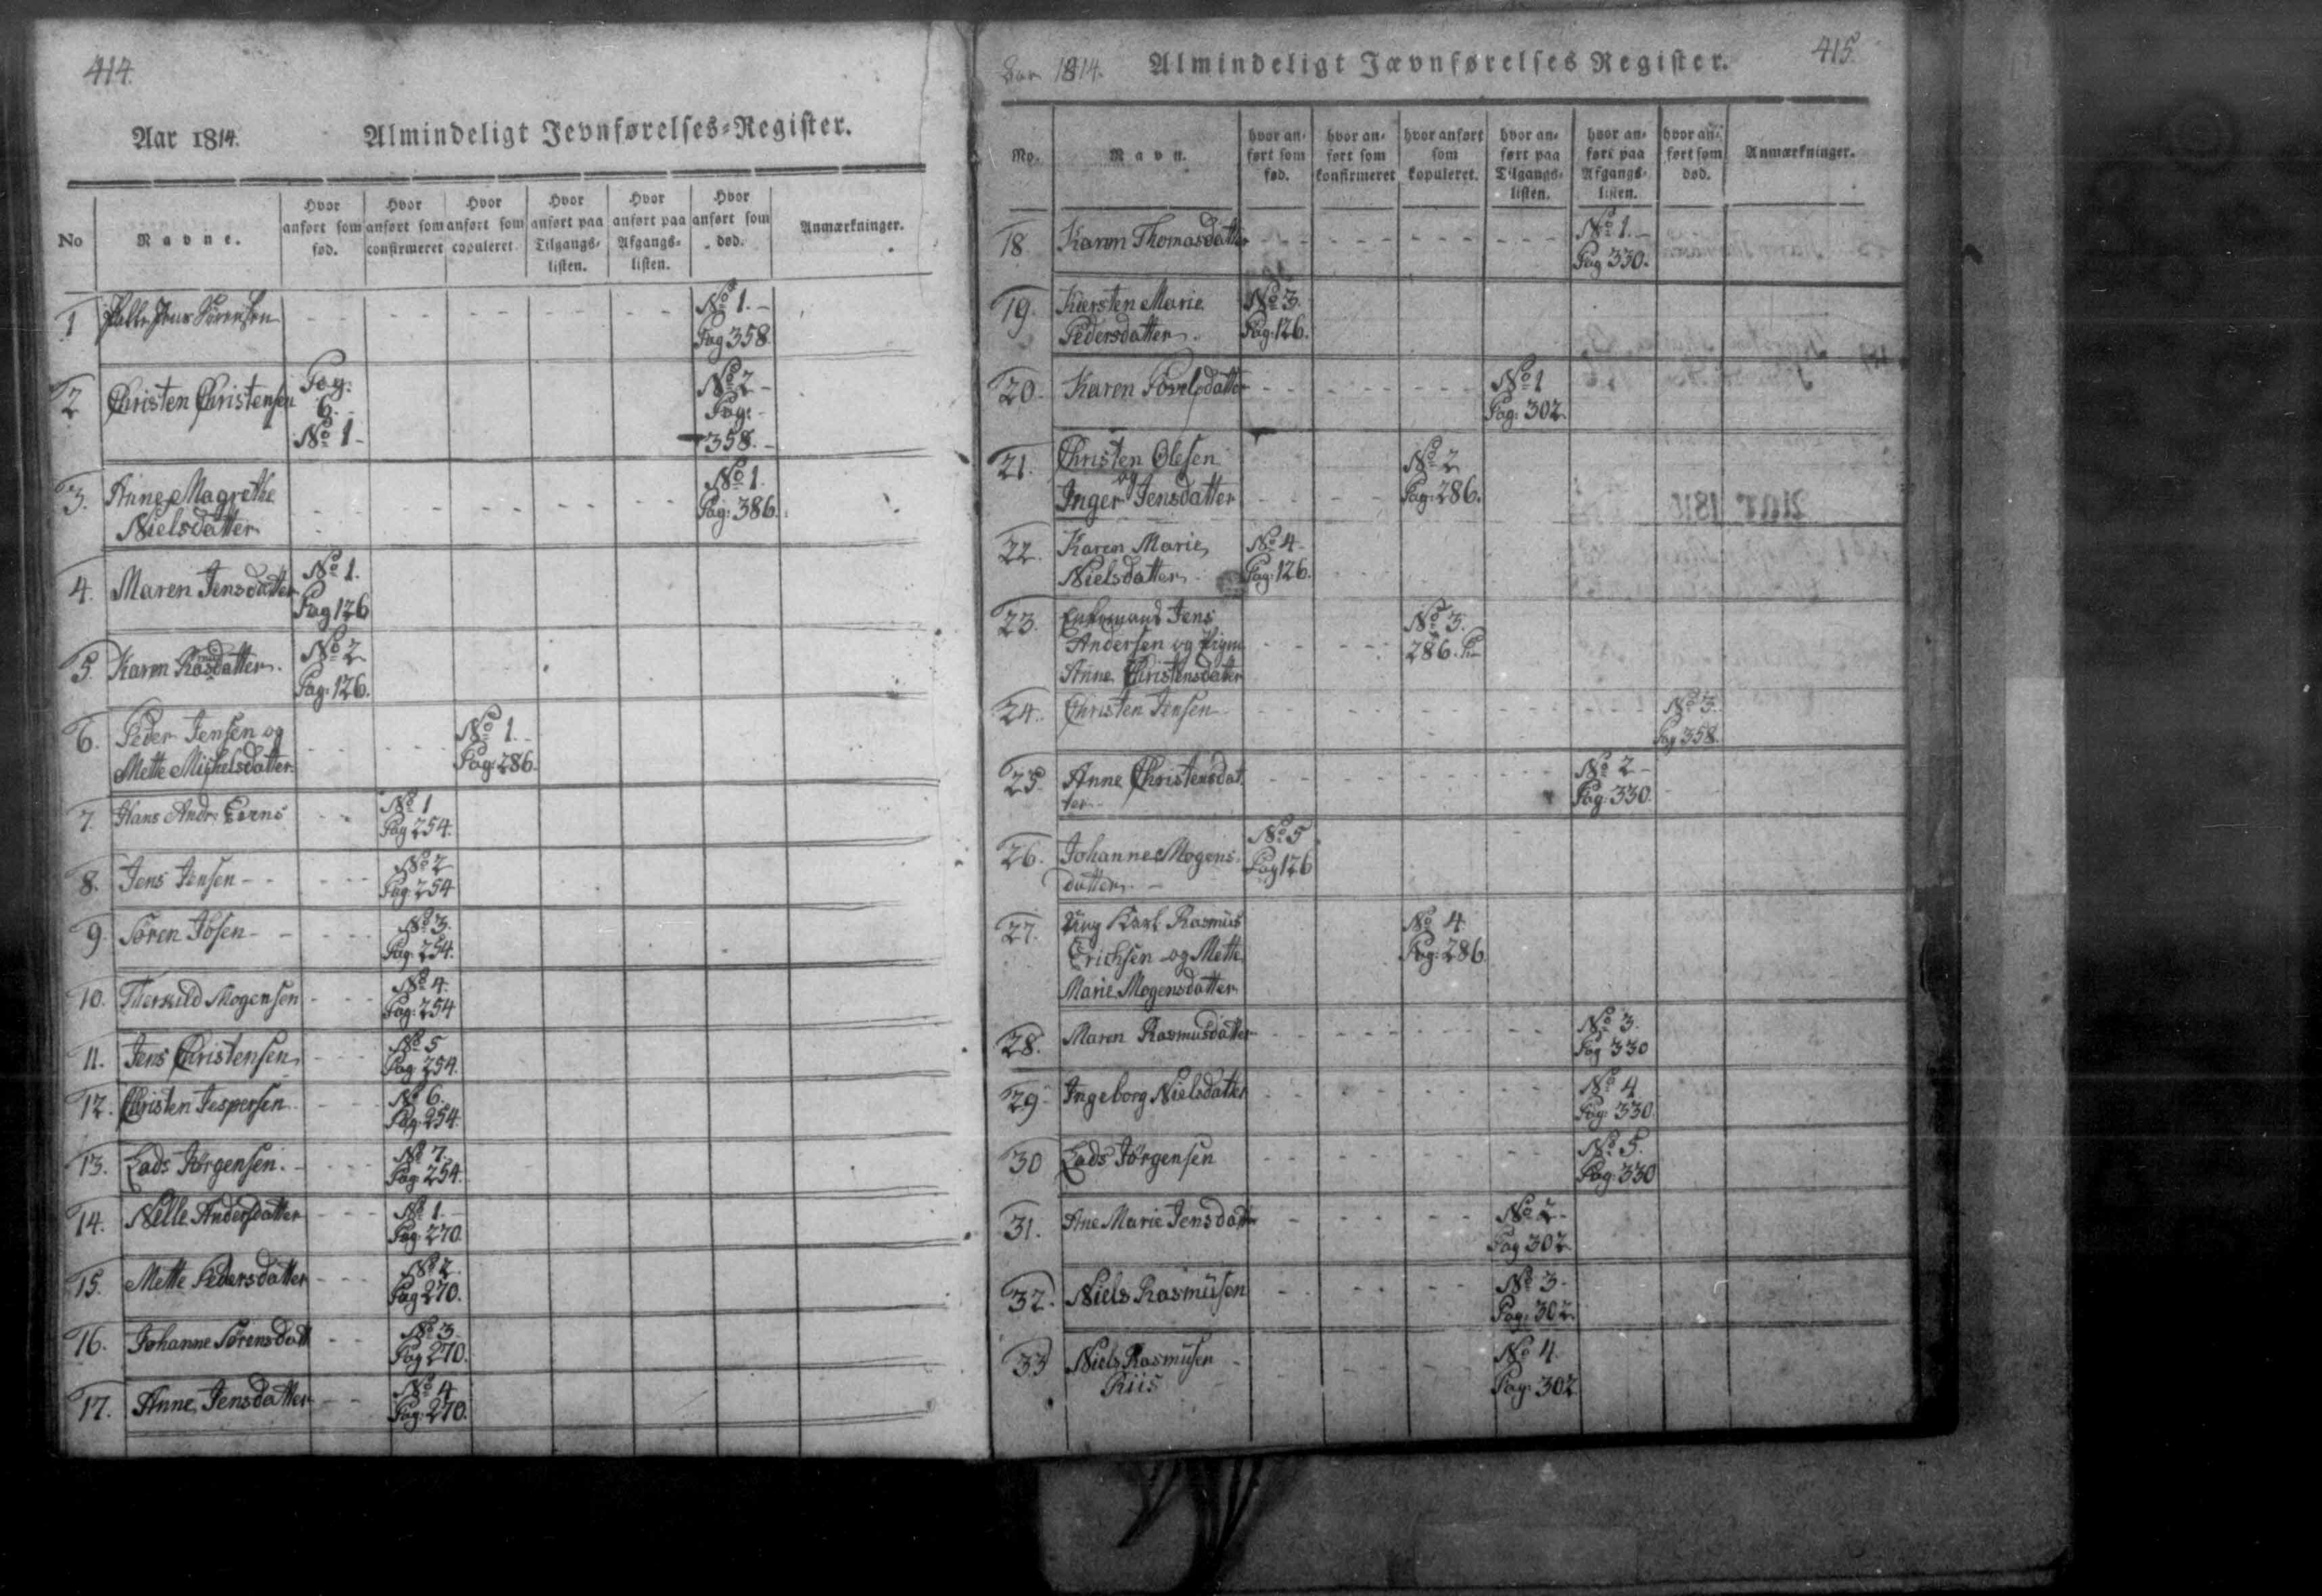 414.
Aar 1814. Almindeligt Jevnførelses-Register.
No
Navne.
Hvor anført som fød.
Hvor anført som confirmeret
Hvor anført som copuleret
Hvor anført paa Tilgangs-listen.
Hvor anført paa Afgangs-listen.
Hvor anført som død.
Anmærkninger.
1 Palle Jens Sørensen No 1. Pag 358.
2 Christen Christensen Pag: 6. No 1 No 2 Pag: 358.
3. Anne Magrethe Nielsdatter No 1. Pag: 386.
4. Maren Jensdatter No 1. Pag 126
5. Karen Rasmusdatter. No 2 Pag: 126.
6. Peder Jensen og Mette Michelsdatter No 1. Pag: 286.
7. Hans Andr: No 1 Pag 254.
8. Jens Jensen No 2 Pag: 254
9. Sören Ibsen No 3. Pag: 254.
10. Therkild Mogensen No 4. Pag: 254
11. Jens Christensen No 5 Pag: 254.
12. Christen Jespersen No 6. Pag: 254.
13. Lads Jörgensen. No 7. Pag: 254.
14. Nelle Andersdatter No 1. Pag: 270.
15. Mette Pedersdatter No 2. Pag 270.
16. Johanne Sörensdatt No 3. Pag 270.
17. Anne Jensdatter No 4 Pag: 270.
Aar 1814. Almindeligt Jævnførelses Register. 415.
No.
Navn.
hvor anført som fød.
hvor anført som konfirmeret
hvor anført som kopuleret.
hvor anført paa Tilgangs-listen.
hvor anført paa Afgangs-listen.
hvor anført som død.
Anmærkninger.
18. Karen Thomasdatter No 1. Pag 330.
19. Kiersten Marie Pedersdatter. No 3. Pag: 126.
20. Karen Povelsdatter No 1 Pag: 302.
21. Christen Olesen og Inger Jensdatter No 2 Pag: 286.
22. Karen Marie Nielsdatter No 4 Pag: 126.
23. Enkemand Jens Andersen og Pigen Anne Christensdatter No 3. 286. P.
24. Christen Jensen No 3. Pag 358.
25. Anne Christensdatter No 2 Pag: 330.
26. Johanne Mogensdatter. No 5 Pag 126
27. Ung Karl Rasmus Erichsen og Mette Marie Mogensdatter No 4. Pag: 286.
28. Maren Rasmusdatter No 3. Pag 330
29. Ingeborg Nielsdatter No 4 Pag: 330.
30 Lads Jörgensen No 5. Pag: 330
31. Ane Marie Jensdatter No 2 Pag 302
32. Niels Rasmüsen No 3 Pag: 302.
33 Niels Rasmüsen Riis No 4. Pag: 302